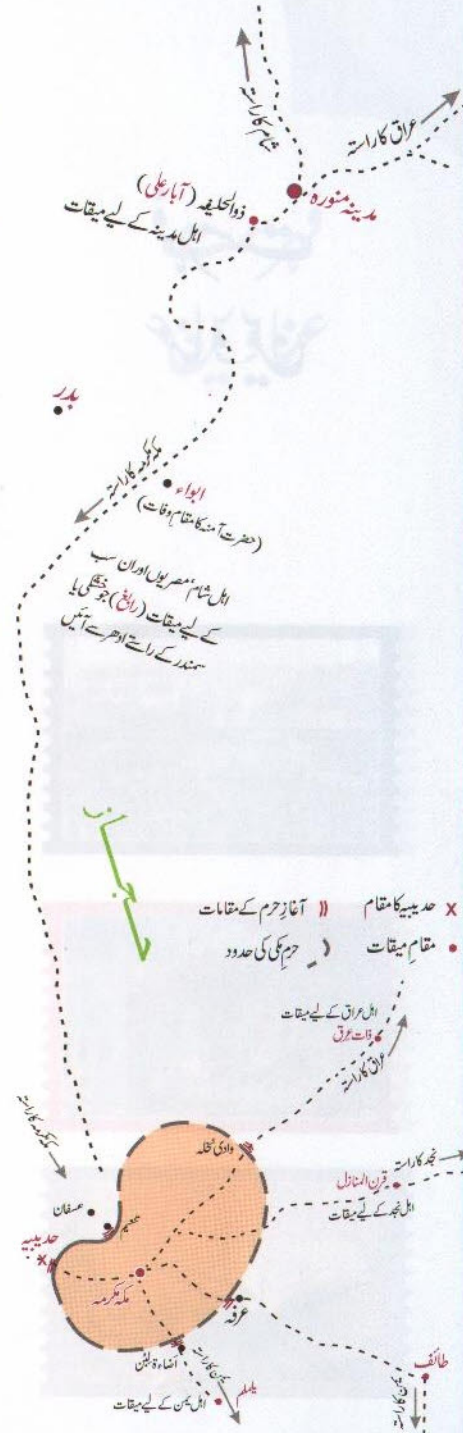 شام کا راستہ
عراق کا راستہ
مدینہ منورہ
ذوالحلیفہ (آبار علی)
اہل مدینہ کے لیے میقات
بدر
مکہ مکرمہ کا راستہ
ابواء
(حضرت آمنہ کا مقام وفات)
اہل شام، مصریوں اور ان سب
کے لیے میقات (رابغ) جو خشکی یا
سمندر کے راستے ادھر سے آئیں
حجاز
x حدیبیہ کا مقام
آغازِ حرم کے مقامات
مقامِ میقات
حرمِ مکی کی حدود
اہل عراق کے لیے میقات
ذات عرق
عراق کا راستہ
مکہ مکرمہ کا راستہ
وادی نخلہ
نجد کا راستہ
قرن المنازل
اہل نجد کے لیے میقات
عسفان
حدیبیہ
x
مکہ مکرمہ
عرفہ
طائف
اضاءۃ لبن
یمن کا راستہ
یلملم
اہل یمن کے لیے میقات
یمن کا راستہ